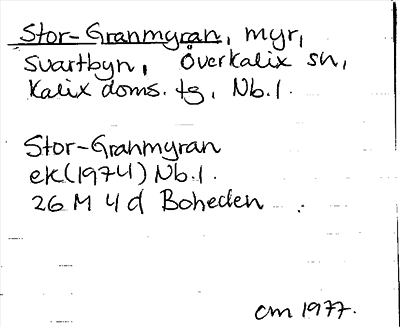 Stor-Granmyran, myr,
Svartbyn, Överkalix sn,
Kalix doms. tg, Nb. l.
Stor-Granmyran
ek (1974) Nb. l.
26 M 4 d Boheden
cm 1977.